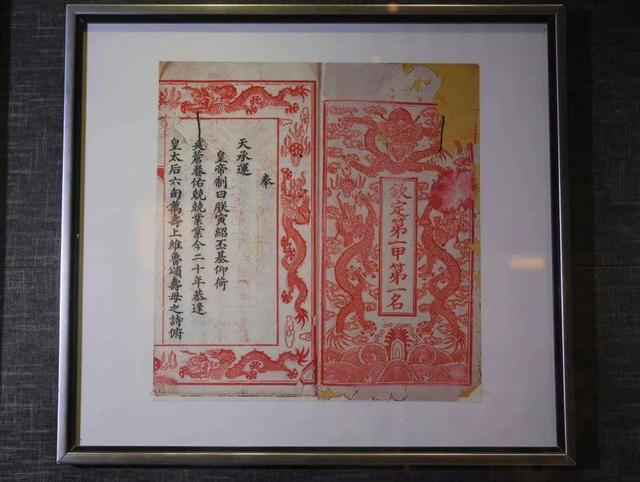 欽定第一甲第一名
奉
天承運
皇帝制曰朕寅紹丕基仰荷
昊蒼眷佑兢兢業業今二十年恭逢
皇太后六旬萬壽上維魯頌壽母之詩俯